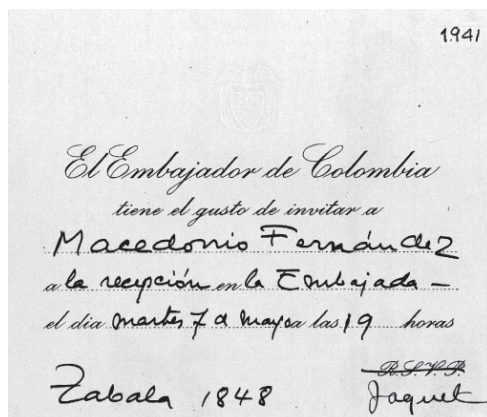 1941
El Embajador de Colombia
tiene el gusto de invitar a
Macedonio Fernández
a la recepción en la Embajada –
el dia martes 7 d mayo a las 19 horas
R.S.V.P.
Zabala 1848 Jaquet